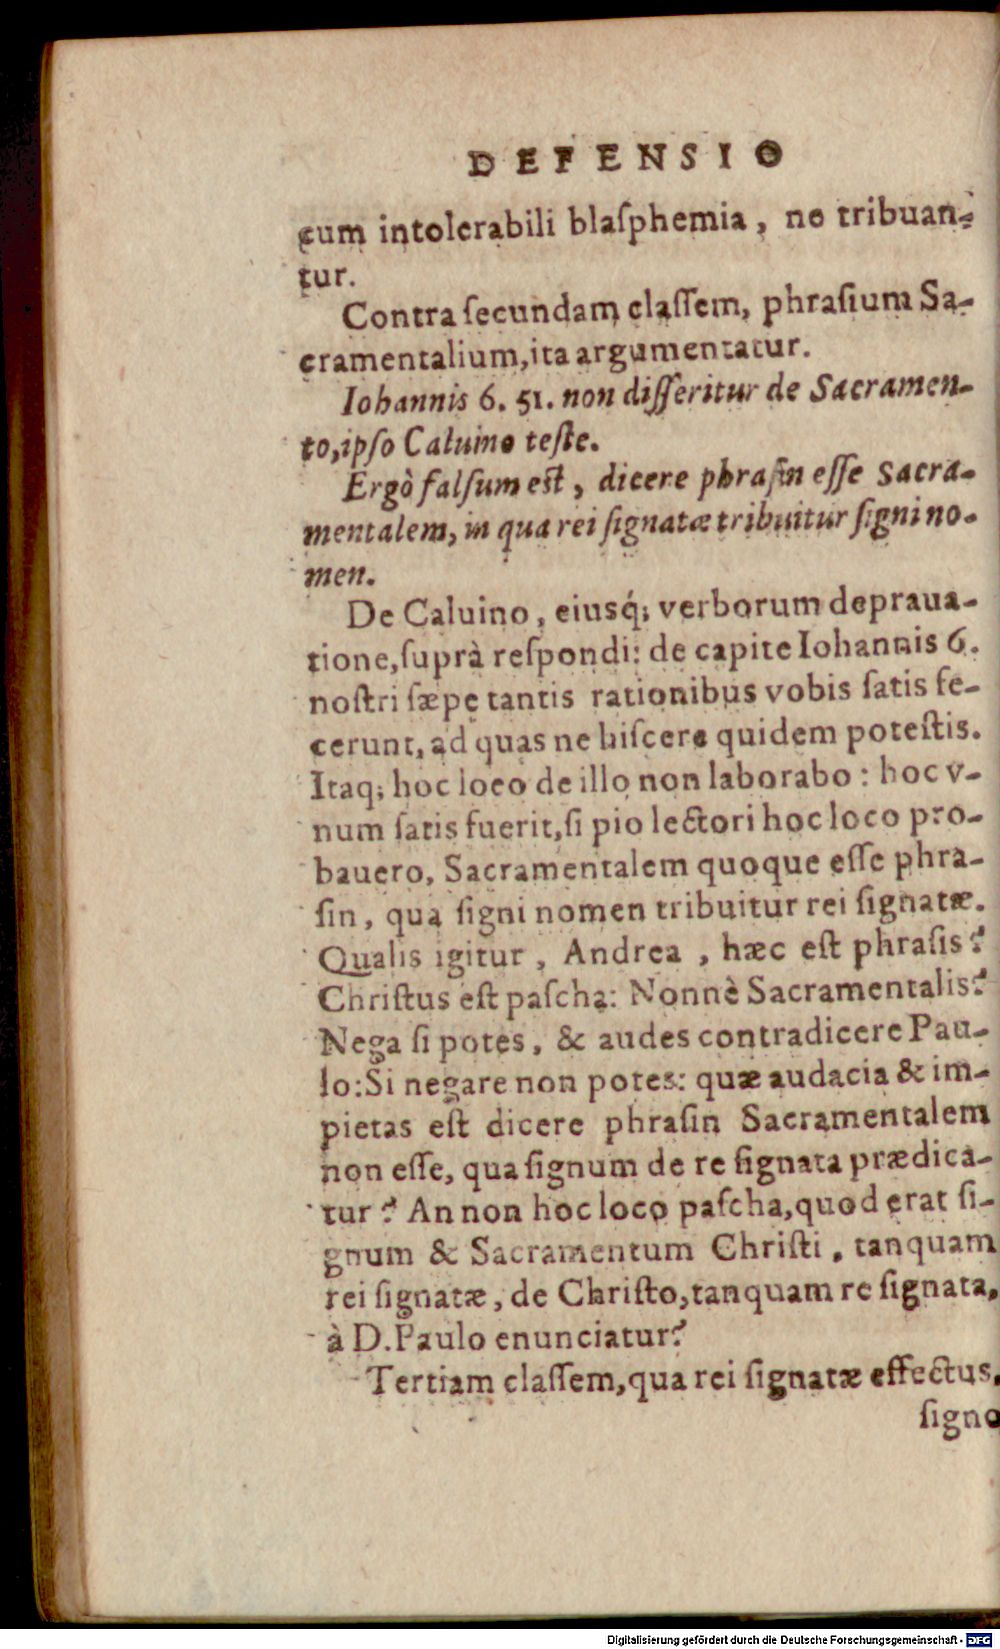 DEFENSIO
cum intolerabili blaſphemia, ne tribuan-
tur.
Contra ſecundam claſſem, phraſium Sa-
cramentalium, ita argumentatur.
Iohannis 6. 51. non diſſeritur de Sacramen-
to, ipſo Caluino teſte.
Ergò falſum est, dicere phraſin eſſe Sacra-
mentalem, in qua rei ſignatæ tribuitur ſigni no-
men.
De Caluino, eiusq́; verborum depraua-
tione, ſuprà reſpondi: de capite Iohannis 6.
noſtri ſæpe tantis rationibus vobis ſatis fe-
cerunt, ad quas ne hiſcere quidem poteſtis.
Itaq; hoc loco de illo non laborabo: hoc v-
num ſatis fuerit, ſi pio lectori hoc loco pro-
bauero, Sacramentalem quoque eſſe phra-
ſin, qua ſigni nomen tribuitur rei ſignatæ.
Qualis igitur, Andrea, hæc eſt phraſis?
Chriſtus eſt paſcha: Nonnè Sacramentalis?
Nega ſi potes, & audes contradicere Pau-
lo: Si negare non potes: quæ audacia & im-
pietas eſt dicere phraſin Sacramentalem
non eſſe, qua ſignum de re ſignata prædica-
tur? An non hoc loco paſcha, quod erat ſi-
gnum & Sacramentum Chriſti, tanquam
rei ſignatæ, de Chriſto, tanquam re ſignata,
à D. Paulo enunciatur?
Tertiam claſſem, qua rei ſignatæ effectus,
ſigno
Digitalisierung gefördert durch die Deutsche Forschungsgemeinschaft - DFG